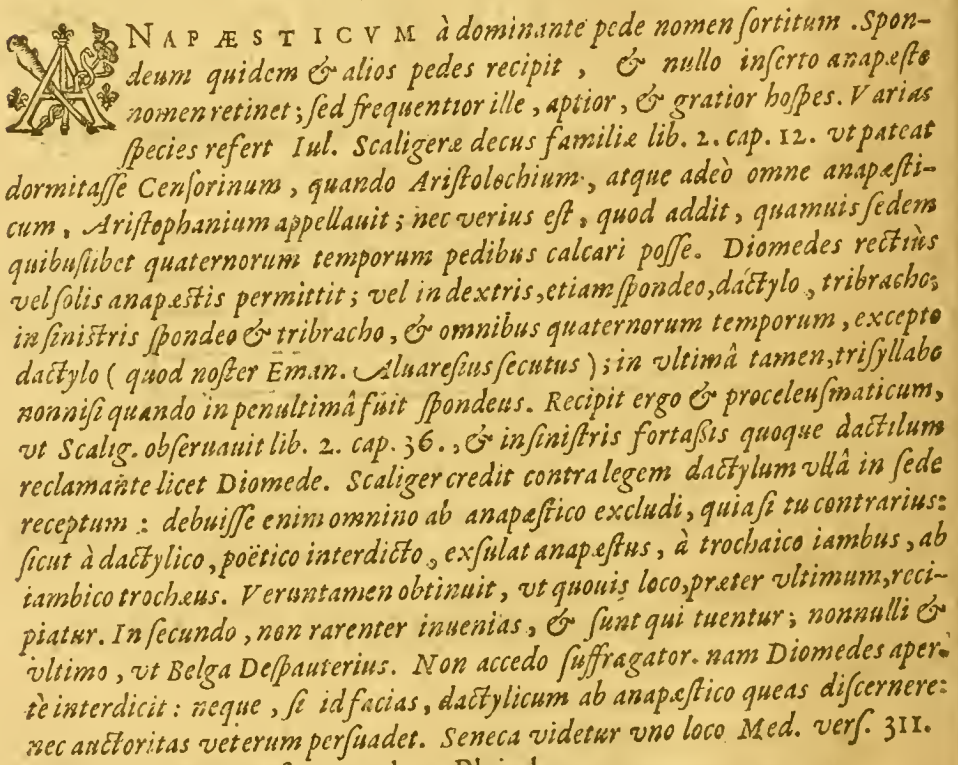 ANAPÆSTICVM à dominante pede nomen sortitum. Spon-
deum quidem & alios pedes recipit, & nullo inserto anapæsto
nomen retinet; sed frequentior ille, aptior, & gratior hospes. Varias
species refert Iul. Scaligeræ decus familiæ lib. 2. cap. 12. vt pateat
dormitasse Censorinum, quando Aristolochium, atque adeò omne anapæsti-
cum, Aristophanium appellauit; nec verius est, quod addit, quamuis sedem
quibuslibet quaternorum temporum pedibus calcari posse. Diomedes rectiùs
vel solis anapæstis permittit; vel in dextris, etiam spondeo, dactylo, tribracho;
in sinistris spondeo & tribracho, & omnibus quaternorum temporum, excepto
dactylo (quod noster Eman. Aluaresius secutus); in vltimâ tamen, trisyllabo
nonnisi quando in penultimâ fuit spondeus. Recipit ergo & proceleusmaticum,
vt Scalig. obseruauit lib. 2. cap. 36., & in sinistris fortaßis quoque dactilum
reclamante licet Diomede. Scaliger credit contra legem dactylum vllâ in sede
receptum: debuisse enim omnino ab anapæstico excludi, quia si tu contrarius:
sicut à dactylico, poëtico interdicto, exsulat anapæstus, à trochaico iambus, ab
iambico trochæus. Veruntamen obtinuit, vt quouis loco, præter vltimum, reci-
piatur. In secundo, non rarenter inuenias, & sunt qui tuentur; nonnulli &
vltimo, vt Belga Despauterius. Non accedo suffragator. nam Diomedes aper-
tè interdicit: neque, si id facias, dactylicum ab anapæstico queas discernere:
nec auctoritas veterum persuadet. Seneca videtur vno loco Med. vers. 311.